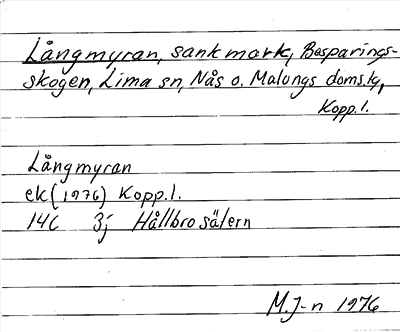 Långmyran, sank mark, Besparings-
skogen, Lima sn, Nås o. Malungs doms.,
Kopp.l.
Långmyran
ek (1976) Kopp.l.
14C 3j Hållbrosälern
M.J-n 1976